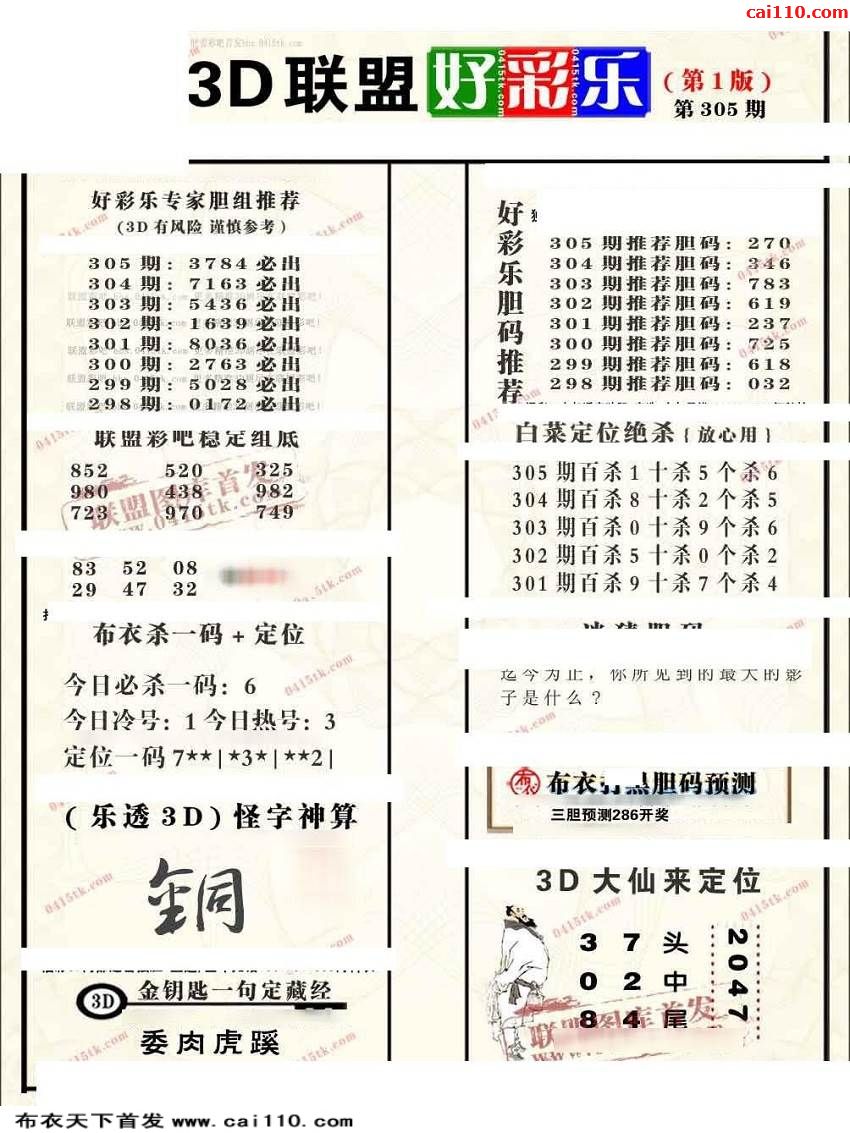 cai110.com
3D联盟好彩乐(第1版)
0415tk.com 0415tk.com 0415tk.com
第305期
好彩乐专家胆组推荐
(3D有风险 谨慎参考)
305期: 3784必出
304期: 7163必出
303期: 5436必出
302期: 1639必出
301期: 8036必出
300期: 2763必出
299期: 5028必出
298期: 0172必出
联盟彩吧稳定组底
852 520 325
980 438 982
723 970 749
联盟图库首发
www.0415tk.com
83 52 08
29 47 32
布衣杀一码+定位
今日必杀一码: 6
今日冷号: 1 今日热号: 3
定位一码7**|*3*|**2|
0415tk.com
(乐透3D)怪字神算
铜
3D 金钥匙一句定藏经
委肉虎蹊
好彩乐胆码推荐
305期推荐胆码: 270
304期推荐胆码: 346
303期推荐胆码: 783
302期推荐胆码: 619
301期推荐胆码: 237
300期推荐胆码: 725
299期推荐胆码: 618
298期推荐胆码: 032
白菜定位绝杀{放心用}
305期百杀1十杀5个杀6
304期百杀8十杀2个杀5
303期百杀0十杀9个杀6
302期百杀5十杀0个杀2
301期百杀9十杀7个杀4
迄今为止，你所见到的最大的影
子是什么?
布衣 胆码预测
三胆预测286开奖
3D大仙来定位
3 7 头
0 2 中
8 4 尾
2047
联盟图库首发
布衣天下首发 www.cai110.com